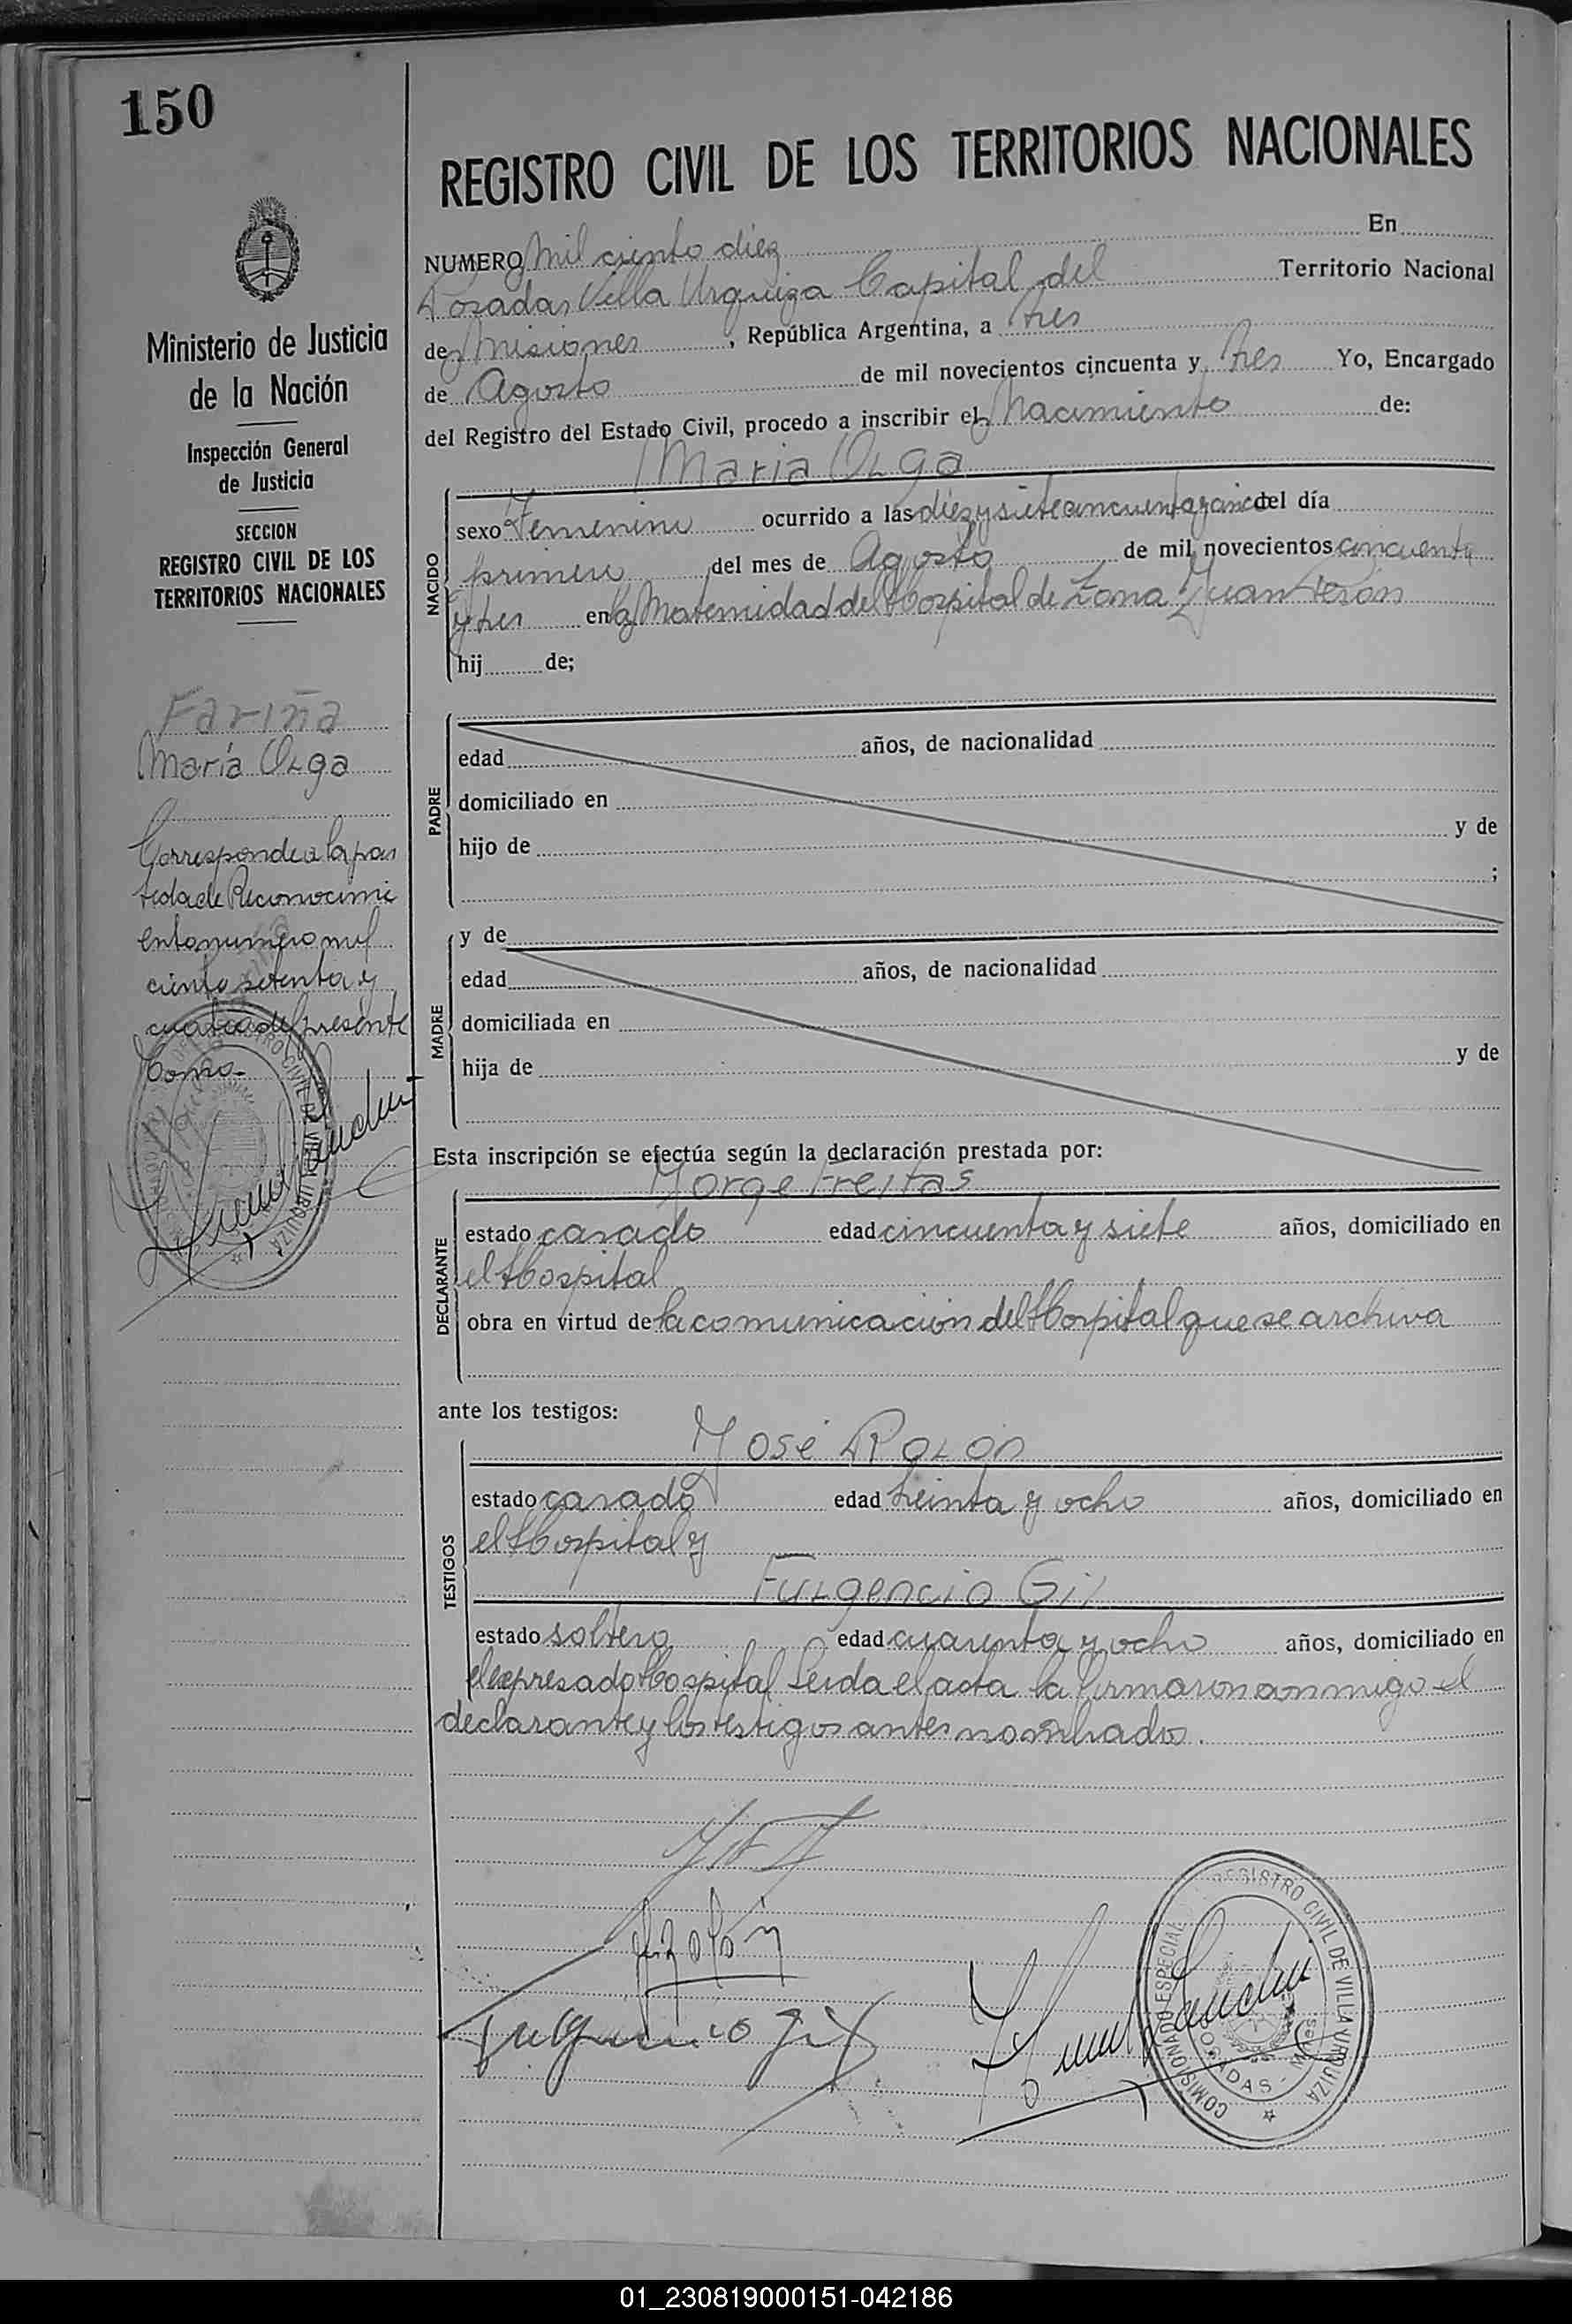 150
Ministerio de Justicia
de la Nación
Inspección General
de Justicia
SECCION
REGISTRO CIVIL DE LOS
TERRITORIOS NACIONALES
Fariña
María Olga
Corresponde a la par
tida de Reconocimi
ento numero mil
ciento setenta y
cuatro del presente
tomo.-
REGISTRO CIVIL DE LOS TERRITORIOS NACIONALES
NUMERO Mil ciento diez En
Posadas Villa Urquiza Capital del Territorio Nacional
de Misiones, República Argentina, a tres
de Agosto de mil novecientos cincuenta y tres Yo, Encargado
del Registro del Estado Civil, procedo a inscribir el Nacimiento de:
Maria Olga
NACIDO
sexo Femenino ocurrido a las diez y siete cincuenta y cinco del día
primero del mes de Agosto de mil novecientos cincuenta
y tres en la Maternidad del Hospital de Zona Juan Perón
hij de;
PADRE
edad años, de nacionalidad
domiciliado en
hijo de y de
;
MADRE
y de
edad años, de nacionalidad
domiciliada en
hija de y de
Esta inscripción se efectúa según la declaración prestada por:
Jorge Freitas
DECLARANTE
estado casado edad cincuenta y siete años, domiciliado en
el Hospital
obra en virtud de la comunicacion del Hospital que se archiva
ante los testigos:
José Rolón
TESTIGOS
estado casado edad treinta y ocho años, domiciliado en
el Hospital y
Fulgencio Gil
estado soltero edad cuarenta y ocho años, domiciliado en
el expresado Hospital Leida el acta la firmaron conmigo el
declarante y los testigos antes nombrados.
Rolón
Fulgencio Gil
COMISIONADO ESPECIAL REGISTRO CIVIL DE VILLA URQUIZA
POSADAS - Mnes.
01_230819000151-042186